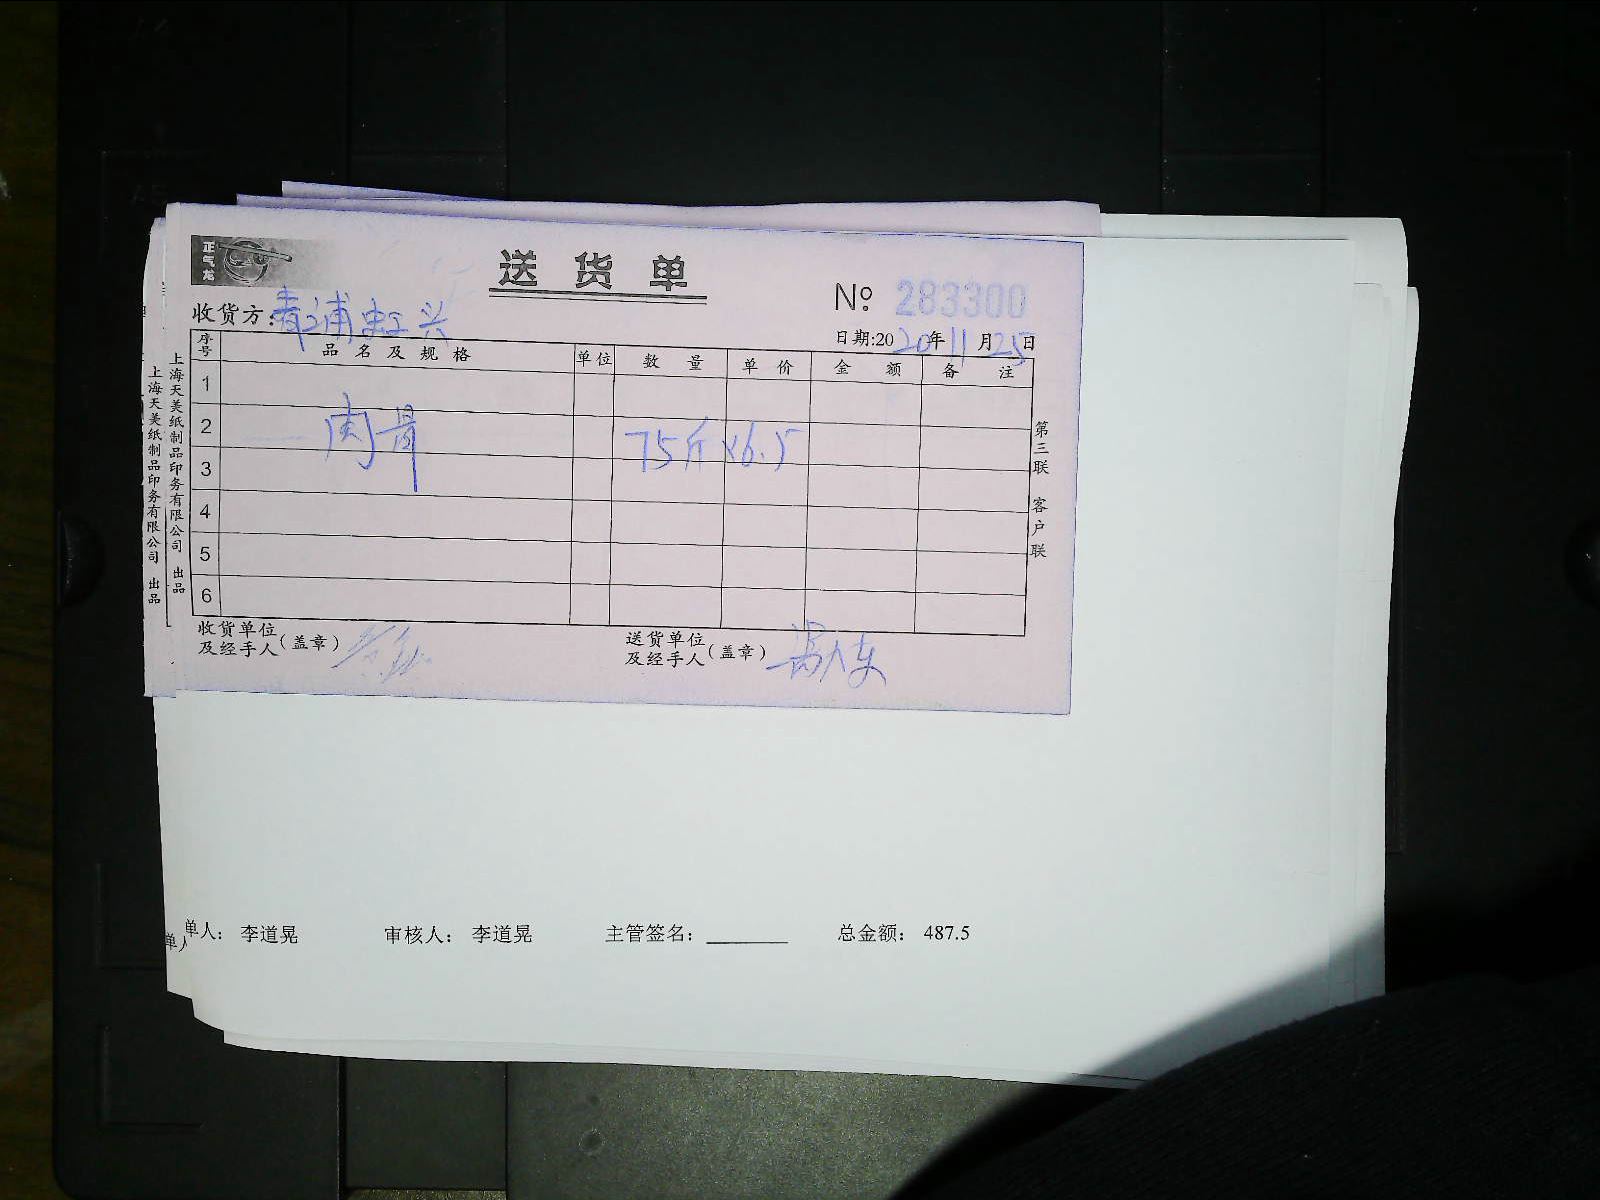 正气龙
送货单
No 283300
收货方:青浦虹兴
日期:2020年11月25日
序号 品名及规格 单位 数量 单价 金额 备注
1
2 肉骨 75斤×6.5
3
4
5
6
第三联 客户联
上海天美纸制品印务有限公司 出品
上海天美纸制品印务有限公司 出品
收货单位及经手人(盖章)
送货单位及经手人(盖章)
单人
单人: 李道晃 审核人: 李道晃 主管签名: 总金额: 487.5